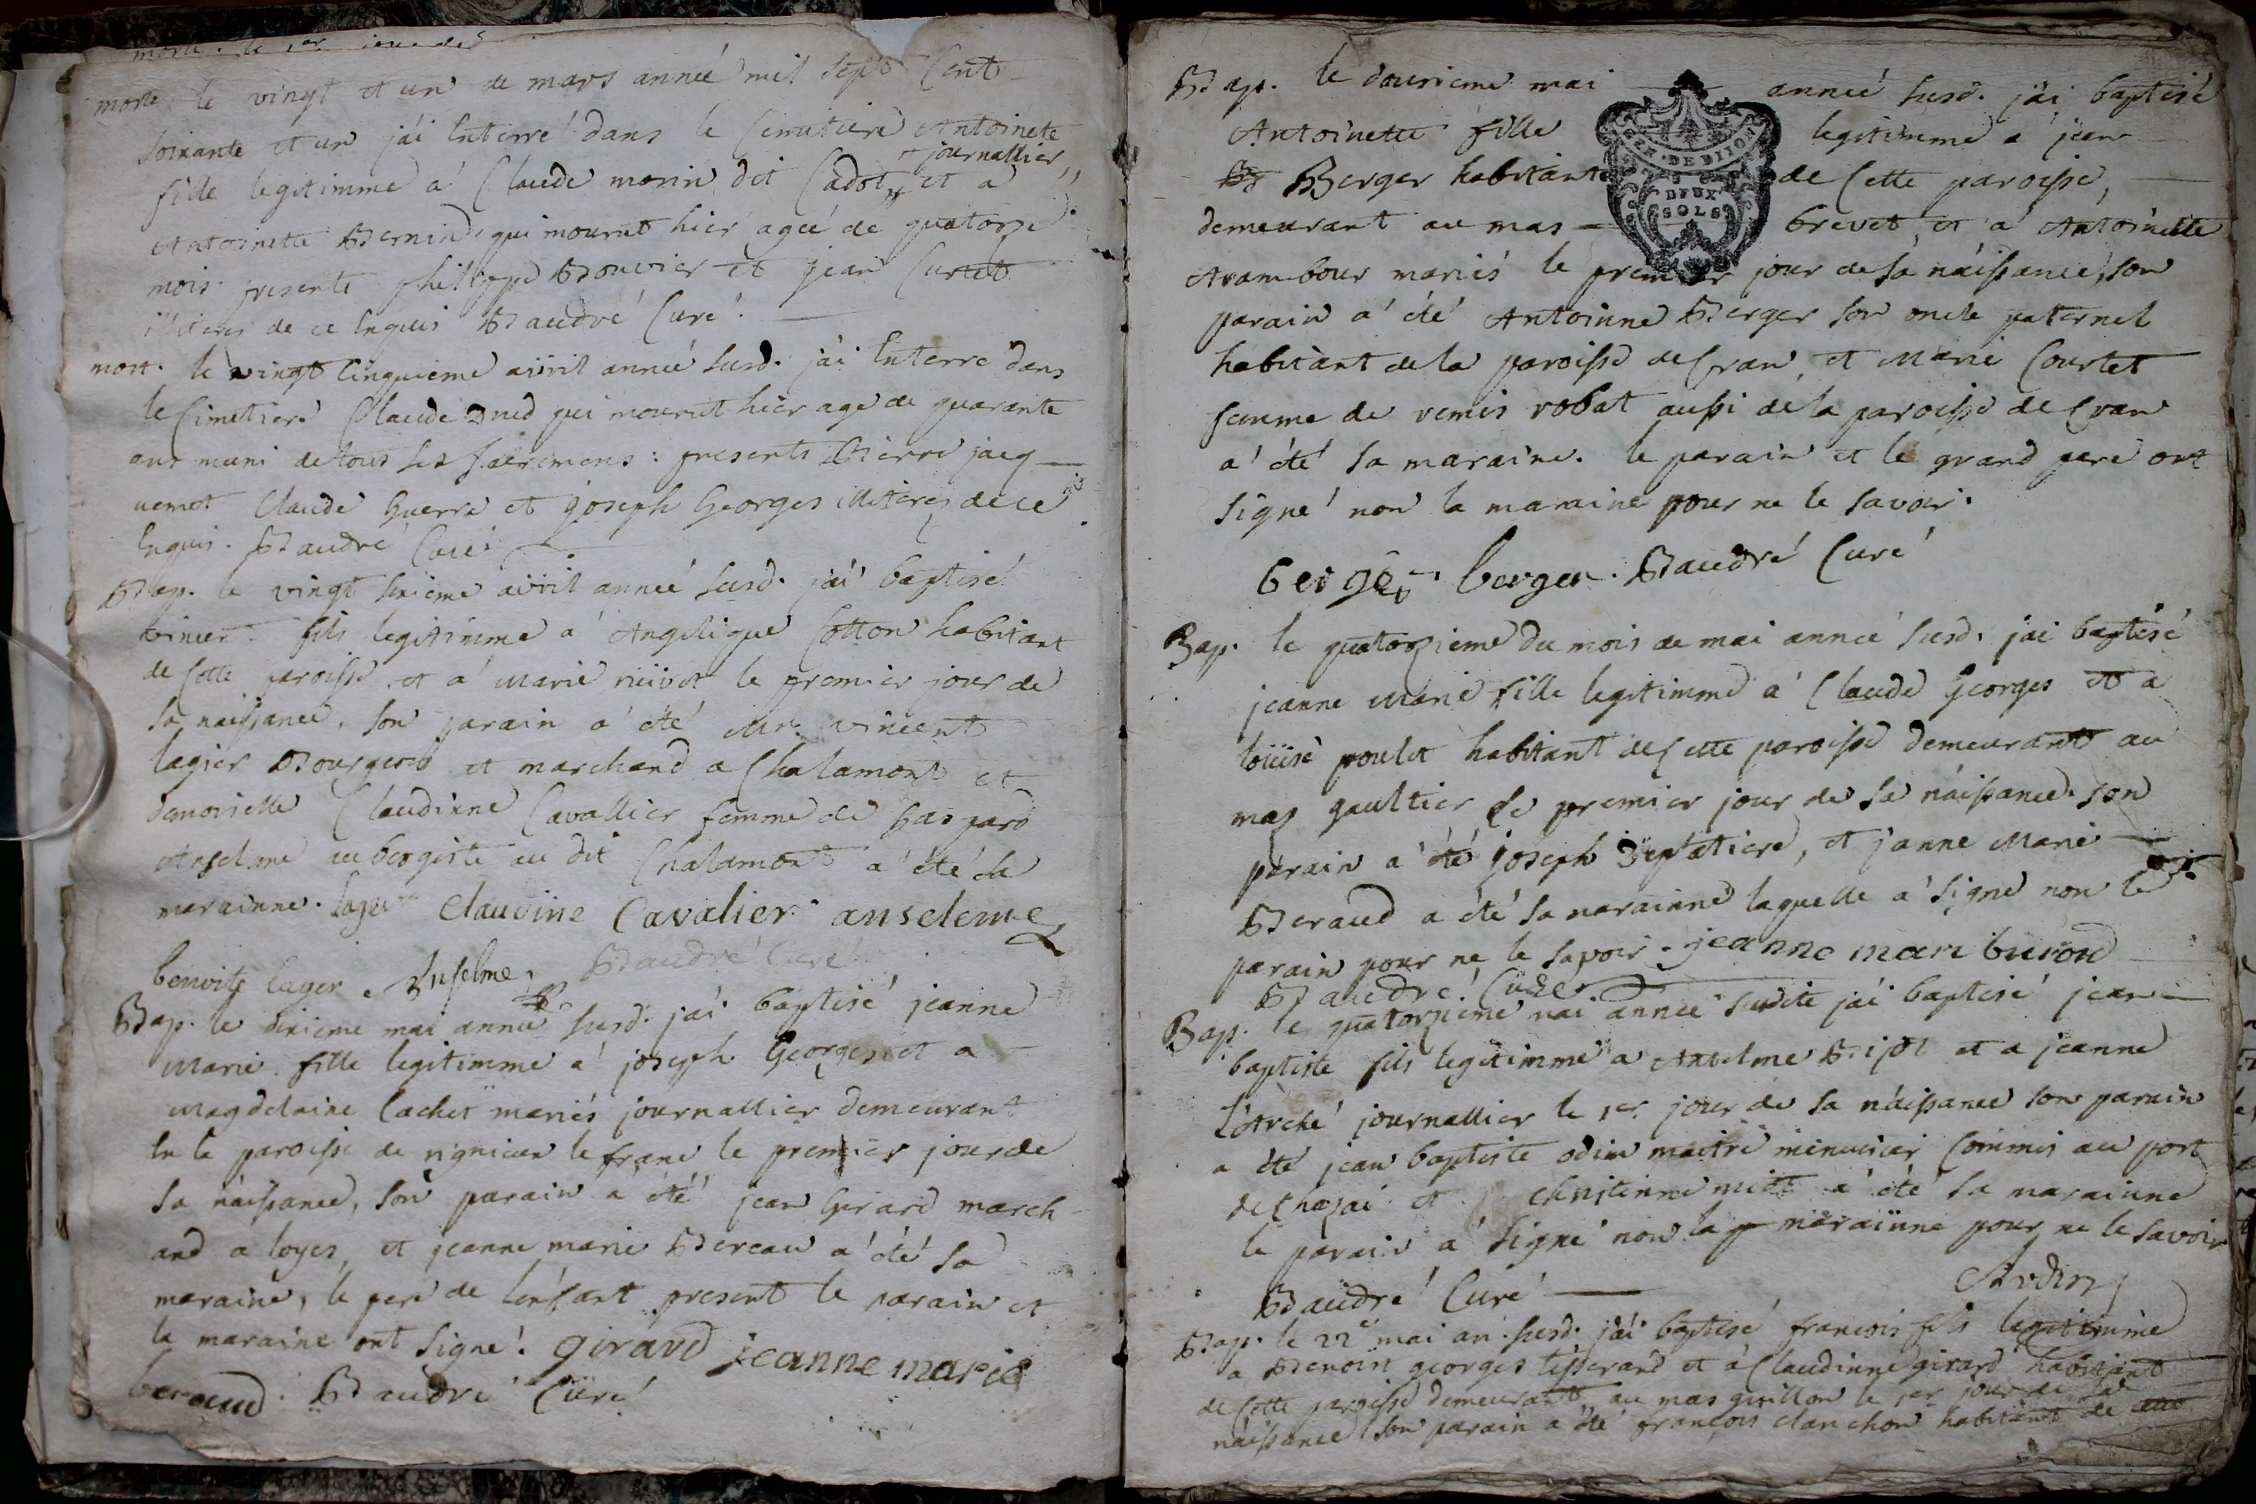 mort. le 1er
mort. le vingt et un de mars année mil sept Cent
soixante et un j'ai Enterré dans le Cimetiere Antoinete
journallier
fille legitimme a Claude morin dit Cadot et a
Antoinette Bernind qui mourut hier ageé de quatorze
mois. presents philippe Bouvier et jean Curtet
illiteres de ce Enquis Baudré Curé.
mort. le vingt Cinquieme avvril année susd. j'ai Enterré dans
le Cimetiere Claude qui mourut hier age de quarante
ans muni de tous les sacremens : presents pierre jacq
uemot Claude Guerre et joseph Georges illiteres de ce
Enquis. Baudré Curé
Bap. le vingt sixieme avvril année susd. j'ai baptisé
vincent fils legitimme a Angelique Cotton habitant
de Cette paroisse et a Marie le premier jour de
sa naissance, son parain a été Mr. vincent
lagier Bourgeois et marchand a Chalamont et
demoiselle Claudinne Cavallier femme de Gaspard
Anselme aubergiste au dit Chalamont a été sa
marainne. lager Claudine Cavalier anseleme
benoite lager. Anselme, Baudré Curé
Bap. le dixieme mai année susd. j'ai baptisé jeanne
Marie fille legitimme a joseph Georges et a
Magdelaine lachet mariés journallier demeurant
En la paroisse de rignieux le franc le premier jour de
sa naissance, son parain a été jean Girard march
and a loyes, et jeanne marie Bereau a été sa
maraine, le pere de l'enfant present le parain et
la maraine ont signé. Giraud jeanne marie
beraud. Baudré Curé
Bap. le douzieme mai année susd. j'ai baptisé
Antoinette fille legitimme a jean
Berger habitant de Cette paroisse,
GEN. DE DIJON
DEUX
SOLS
demeurant au mas brevet et a Antoinette
Arambour mariés le premier jour de sa naissance, son
parain a été Antoinne Berger son oncle paternel
habitant de la paroisse de Cran, et Marie Courtet
femme de robat aussi de la paroisse de Cran
a été sa maraine. le parain et le grand pere ont
signé non la maraine pour ne le savoir.
berger. Baudré Curé
Bap. le quatorzieme du mois de mai année susd. j'ai baptisé
jeanne Marie fille legitimme a Claude Georges et a
loüise poulet habitant de Cette paroisse demeurant au
mas gaultier le premier jour de sa naissance. son
parain a été joseph, et janne Marie
Beraud a été sa marainne laquelle a signé non le
parain pour ne le savoir. jeanne mari
Baudré Curé
Bap. le quatorzieme mai année sudite j'ai baptisé jean
baptiste fils legitimme a Anselme Bijot et a jeanne
l'Arché journallier le 1er jour de sa naissance son parain
a été jean baptiste odin maitre menuisier Commis au port
de Chazai et Christinne a été sa marainne
le parain a signé non la marainne pour ne le savoir
Baudré Curé
Bap. le 22e mai an. susd. j'ai baptisé francois fils legitimme
a Benoit georges tisserand et a Claudinne girard habitant
de Cette paroisse demeurant au mas guillon le 1er jour de sa
naissance son parain a été francois clanchon habitant de